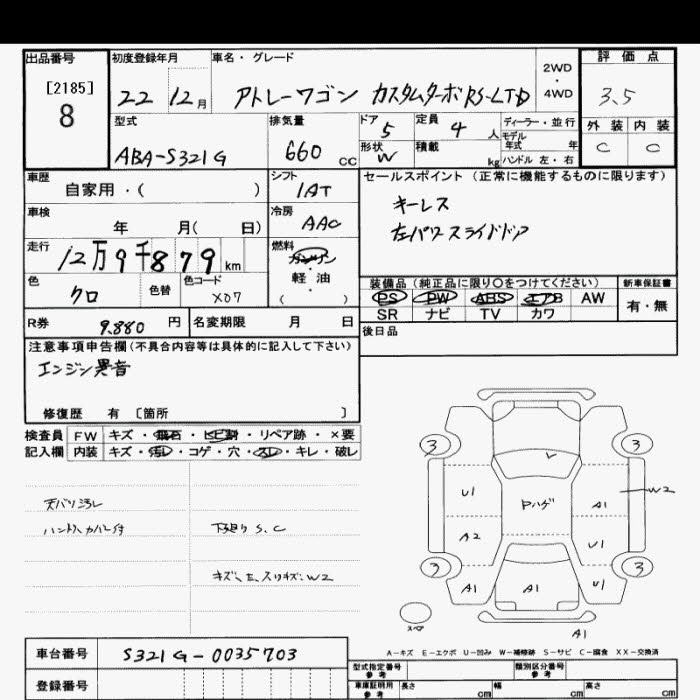 出品番号
[2185]
8
初度登録年月
22 12月
車名・グレード
アトレーワゴン カスタムターボRS-LTD
2WD
・
4WD
評価点
3.5
外装 内装
C C
型式
ABA-S321G
排気量
660 CC
ドア
5
形状
W
定員
4 人
積載
kg
ディーラー・並行
モデル
年式 年
ハンドル 左・右
車歴
自家用・( )
シフト
1AT
セールスポイント(正常に機能するものに限ります)
キーレス
左パワースライドドア
車検
年 月( 日)
冷房
AAC
走行
12万9千879km
燃料
ガソリン
・
軽油
・
( )
色
クロ
色替
色コード
X07
装備品(純正品に限り○をつけてください)
PS PW ABS エアB AW
SR ナビ TV カワ
新車保証書
有・無
R券
9.880 円
名変期限 月 日
後日品
注意事項申告欄(不具合内容等は具体的に記入して下さい)
エンジン異音
修復歴 有 〔箇所 〕
検査員
記入欄
FW キズ・飛石・ヒビ割・リペア跡・×要
内装 キズ・汚レ・コゲ・穴・スレ・キレ・破レ
天バリ汚レ
ハンドルカバー付
下廻りS.C
キズ、E、スリキズ、W2
3 3
U1
A1
W2
Pハゲ
A2
U1
3 3
A1
A1
U1
A1
スペア
A-キズ E-エクボ U-凹み W-補修跡 S-サビ C-腐食 XX-交換済
車台番号
S321G-0035703
登録番号
型式指定番号
参考
類別区分番号
参考
車庫証明用
参考
長さ cm
幅 cm
高さ cm